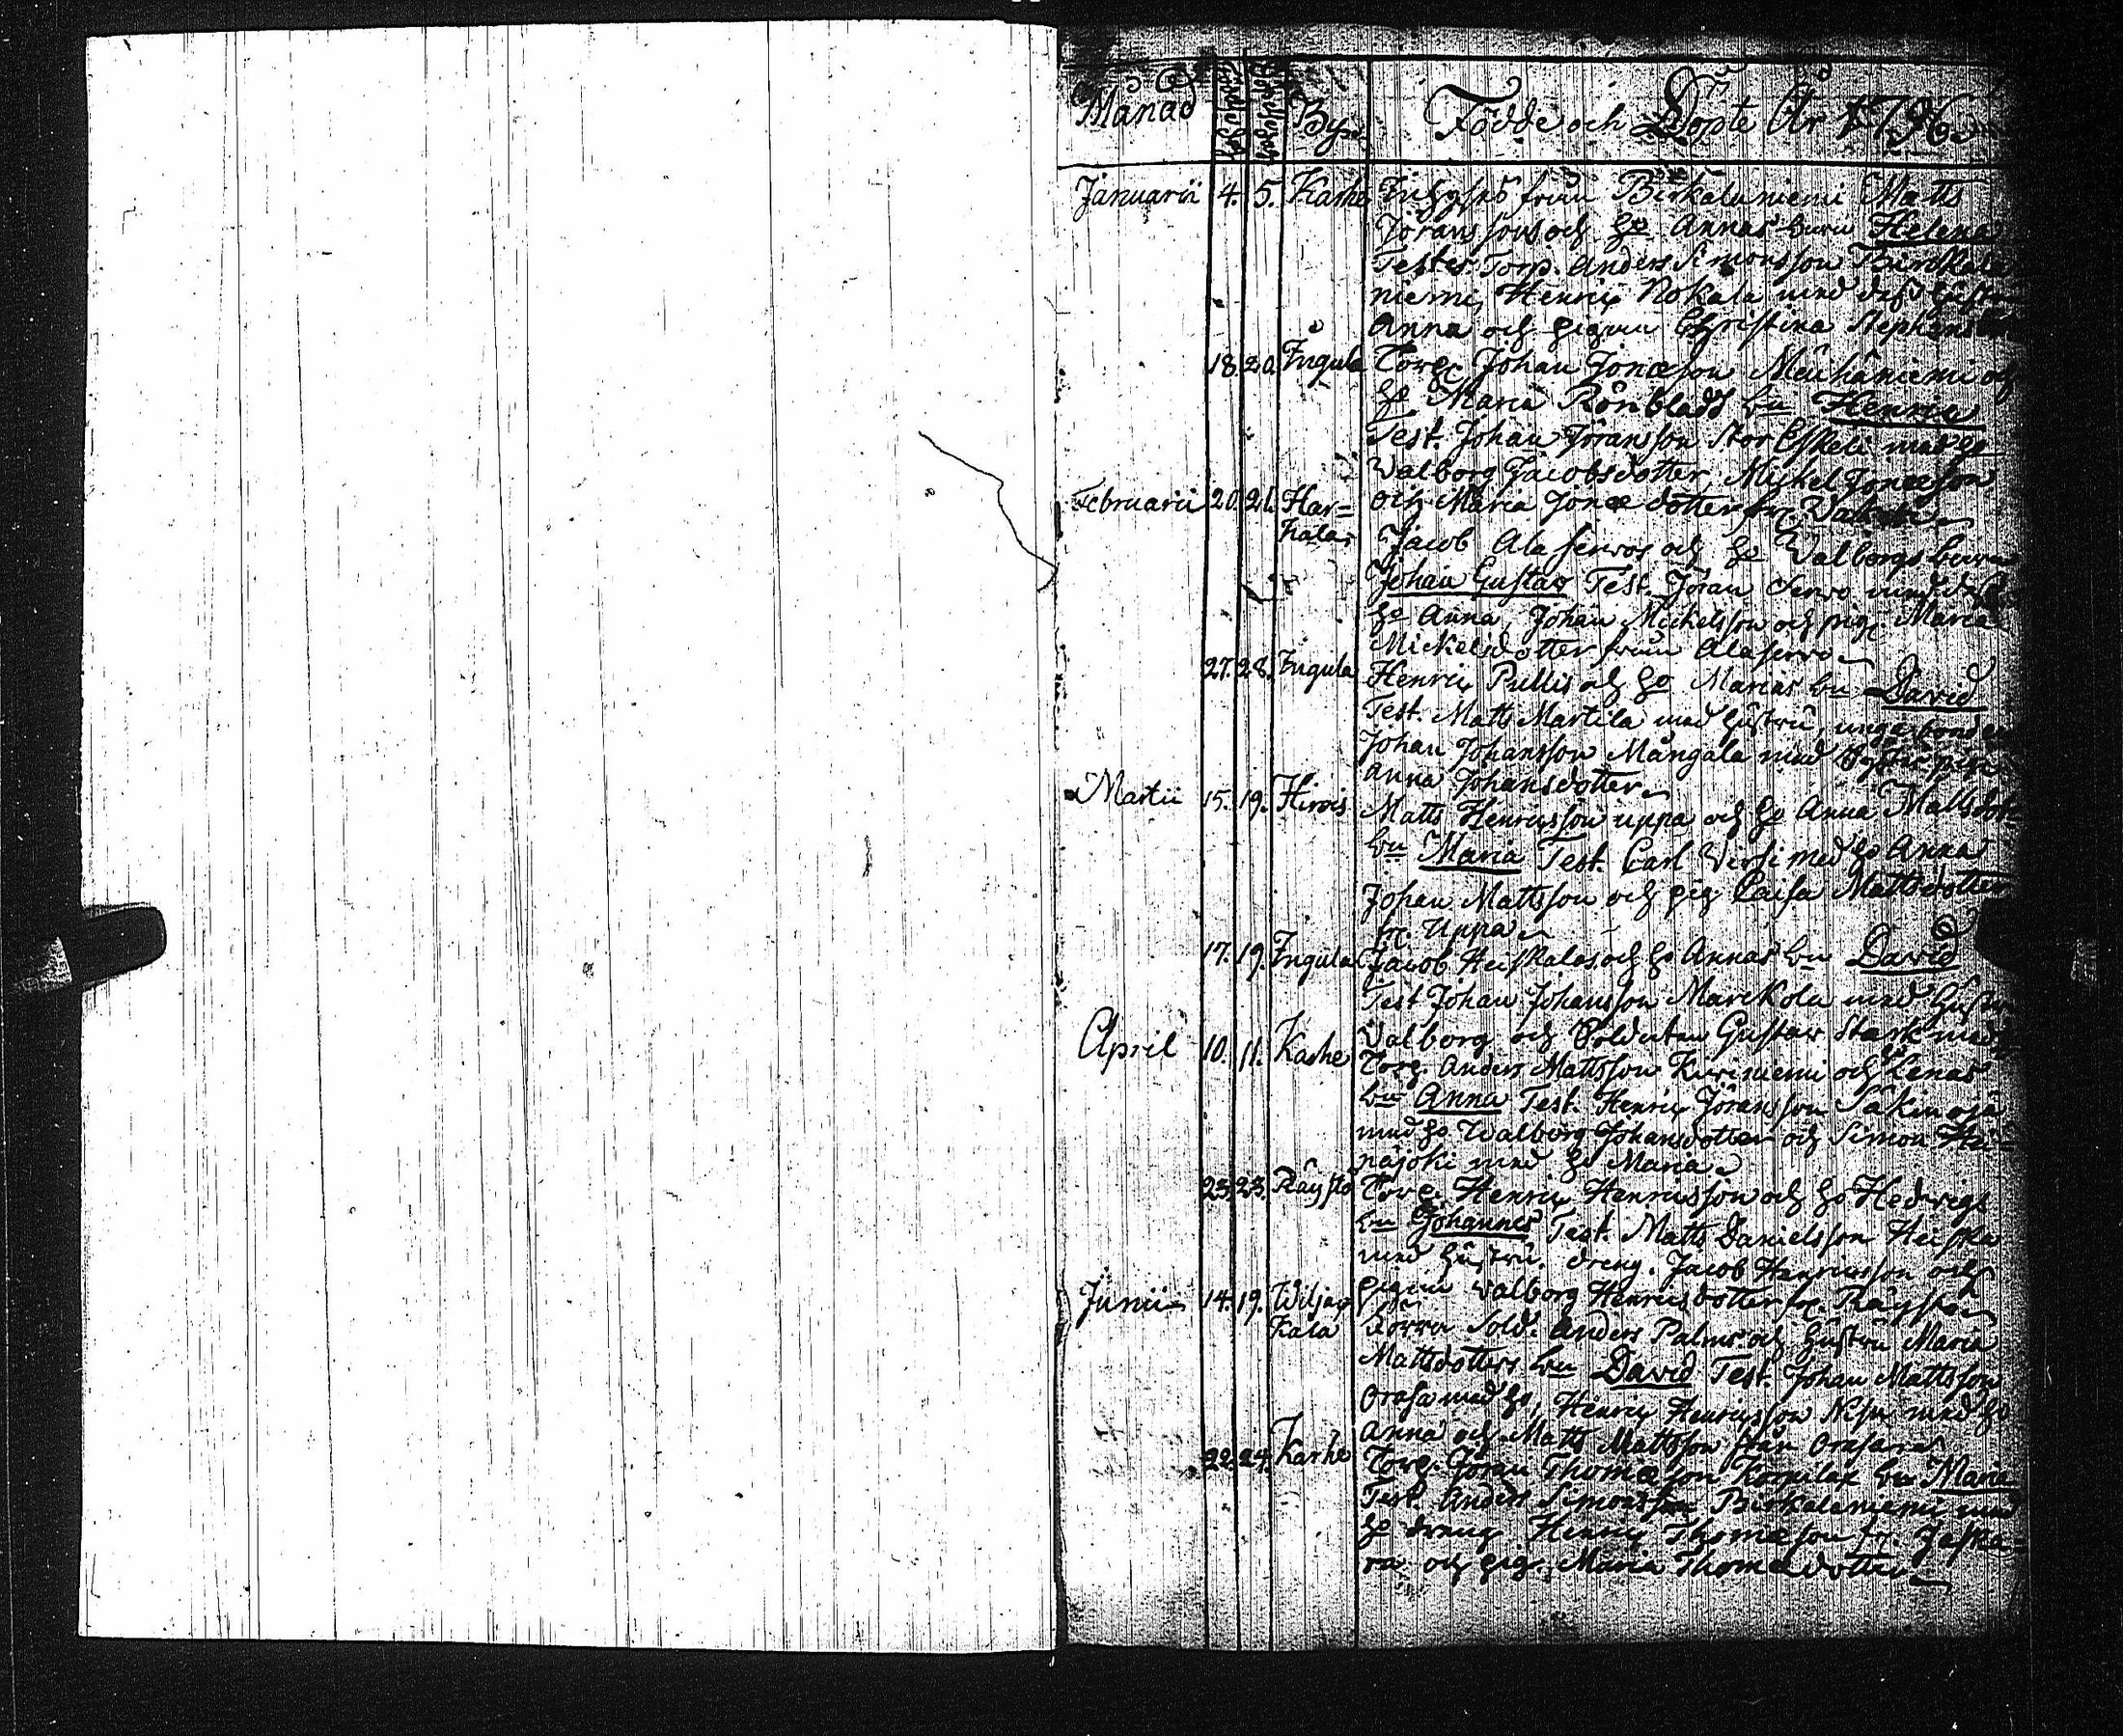 Månad Byar Födde och Döpte År 1796
Januarii 4. 5. Karhe från Birkalaniemi Matts
Jöransson och ho Annas barn Helena
Testes Torp. Anders Simonsson Birkala
niemi, Henric Nokala med dess hustru
Anna och pigan Christina Stephansdotter
18. 20. Ingula Torp. Johan Jonæson och
ho Maria Rönblads bn Henric
Test. Johan Jöransson Stor Eskeli med ho
Walborg Jacobsdotter, Michel Jonæson
Februarii 20. 21. Har= och Maria Jonædotter fr.
kala Jacob Alaserwos och ho Walborgs barn
Johan Gustav Test. Jöran Serwo med
ho Anna, Johan Michelsson och pig. Maria
Mickelsdotter från Alaserwo
27. 28. Ingula Henric Pullis och ho Marias bn David
Test. Matts Martila med hustru, unga bonden
Johan Johansson Mångala med
Anna Johansdotter
Martii 15. 19. Hirvis Matts Henricsson uppa och ho Anna Mattsdott
bn Maria Test. Carl Wersi med ho Anna
Johan Mattsson och pig Caisa Mattsdotter
fr. Uppa
17. 19. Ingula Jacob Heiskalas och ho Annas bn David
Test Johan Johansson Marckola med hustru
Walborg och Soldaten Gustav Stark med
April 10. 11. Karhe Torp. Anders Mattsson Kuriniemi och Lenas
bn Anna Test. Henric Jöransson Säkinoja
med ho Walborg Johansdotter och Simon Hei-
najoki med ho Maria
23. 23. Räystö Torp. Henric Henricsson och ho Hedwigs
bn Johannes Test. Matts Danielsson Heiska
med hustru. dreng. Jacob Henricsson och
Junii 14. 19. Wiljak pigan Walborg Henricsdotter fr. Räystö
kala Sold. Anders Palms och hustru Maria
Mattsdotters bn David Test. Johan Mattsson
Orasa med ho, Henric Henricsson med ho
Anna och Matts Mattsson från Orasa
22. 24. Karhe Torp. Jöran Thomæson bn Maria
Test. Anders Simonsson Birkalaniemi med
ho dreng Henric Thomæson fr. Jeske-
ra och pig. Maria Thomædotter